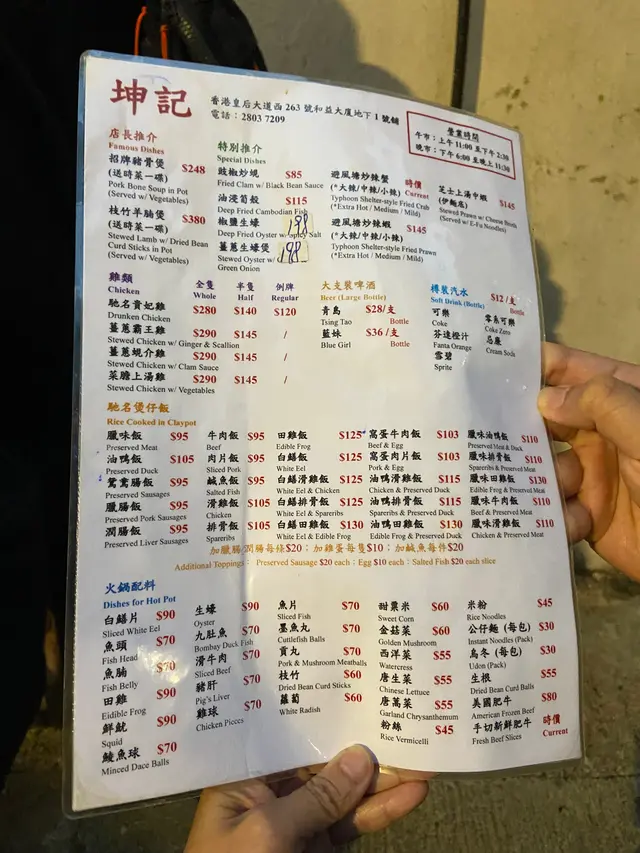 坤記
香港皇后大道西 263 號和益大廈地下 1 號舖
電話：2803 7209
營業時間
午市：上午 11:00 至下午 2:30
晚市：下午 6:00 至晚上 11:30
店長推介
Famous Dishes
招牌豬骨煲 $248
(送時菜一碟)
Pork Bone Soup in Pot
(Served w/ Vegetables)
枝竹羊腩煲 $380
(送時菜一碟)
Stewed Lamb w/ Dried Bean
Curd Sticks in Pot
(Served w/ Vegetables)
特別推介
Special Dishes
豉椒炒蜆 $85
Fried Clam w/ Black Bean Sauce
油浸筍殼 $115
Deep Fried Cambodian Fish
椒鹽生蠔 198
Deep Fried Oyster w/ Spicy Salt
薑蔥生蠔煲 198
Stewed Oyster w/
Green Onion
避風塘炒辣蟹 時價
(*大辣/中辣/小辣) Current
Typhoon Shelter-style Fried Crab
(*Extra Hot / Medium / Mild)
避風塘炒辣蝦 $145
(*大辣/中辣/小辣)
Typhoon Shelter-style Fried Prawn
(*Extra Hot / Medium / Mild)
芝士上湯中蝦 $145
(伊麵底)
Stewed Prawn w/ Cheese Broth
(Served w/ E-Fu Noodles)
雞類 全隻 半隻 例牌
Chicken Whole Half Regular
馳名貴妃雞 $280 $140 $120
Drunken Chicken
薑蔥霸王雞 $290 $145 /
Stewed Chicken w/ Ginger & Scallion
薑蔥蜆介雞 $290 $145 /
Stewed Chicken w/ Clam Sauce
菜膽上湯雞 $290 $145 /
Stewed Chicken w/ Vegetables
大支裝啤酒
Beer (Large Bottle)
青島 $28/支
Tsing Tao Bottle
藍妹 $36/支
Blue Girl Bottle
樽裝汽水 $12/支
Soft Drink (Bottle) Bottle
可樂 零系可樂
Coke Coke Zero
芬達橙汁 忌廉
Fanta Orange Cream Soda
雪碧
Sprite
馳名煲仔飯
Rice Cooked in Claypot
臘味飯 $95 牛肉飯 $95 田雞飯 $125 窩蛋牛肉飯 $103 臘味油鴨飯 $110
Preserved Meat Beef Edible Frog Beef & Egg Preserved Meat & Duck
油鴨飯 $105 肉片飯 $95 白鱔飯 $125 窩蛋肉片飯 $103 臘味排骨飯 $110
Preserved Duck Sliced Pork White Eel Pork & Egg Spareribs & Preserved Meat
鴛鴦腸飯 $95 鹹魚飯 $95 白鱔滑雞飯 $125 油鴨滑雞飯 $115 臘味田雞飯 $130
Preserved Sausages Salted Fish White Eel & Chicken Chicken & Preserved Duck Edible Frog & Preserved Meat
臘腸飯 $95 滑雞飯 $105 白鱔排骨飯 $125 油鴨排骨飯 $115 臘味牛肉飯 $110
Preserved Pork Sausages Chicken White Eel & Spareribs Chicken & Preserved Duck Beef & Preserved Meat
潤腸飯 $95 排骨飯 $105 白鱔田雞飯 $130 油鴨田雞飯 $130 臘味滑雞飯 $110
Preserved Liver Sausages Spareribs White Eel & Edible Frog Edible Frog & Preserved Duck Chicken & Preserved Meat
加臘腸/潤腸每條$20；加雞蛋每隻$10；加鹹魚每件$20
Additional Toppings： Preserved Sausage $20 each；Egg $10 each；Salted Fish $20 each slice
火鍋配料
Dishes for Hot Pot
白鱔片 $90
Sliced White Eel
魚頭 $70
Fish Head
魚腩 $70
Fish Belly
田雞 $90
Eidible Frog
鮮魷 $90
Squid
鯪魚球 $70
Minced Dace Balls
生蠔 $90
Oyster
九肚魚 $70
Bombay Duck Fish
滑牛肉 $70
Sliced Beef
豬肝 $70
Pig's Liver
雞球 $70
Chicken Pieces
魚片 $70
Sliced Fish
墨魚丸 $70
Cuttlefish Balls
貢丸 $70
Pork & Mushroom Meatballs
枝竹 $60
Dried Bean Curd Sticks
蘿蔔 $60
White Radish
甜粟米 $60
Sweet Corn
金菇菜 $60
Golden Mushroom
西洋菜 $55
Watercress
唐生菜 $55
Chinese Lettuce
唐萵菜 $55
Garland Chrysanthemum
粉絲 $45
Rice Vermicelli
米粉 $45
Rice Noodles
公仔麵 (每包) $30
Instant Noodles (Pack)
烏冬 (每包) $30
Udon (Pack)
生根 $55
Dried Bean Curd Balls
美國肥牛 $80
American Frozen Beef
手切新鮮肥牛 時價
Fresh Beef Slices Current